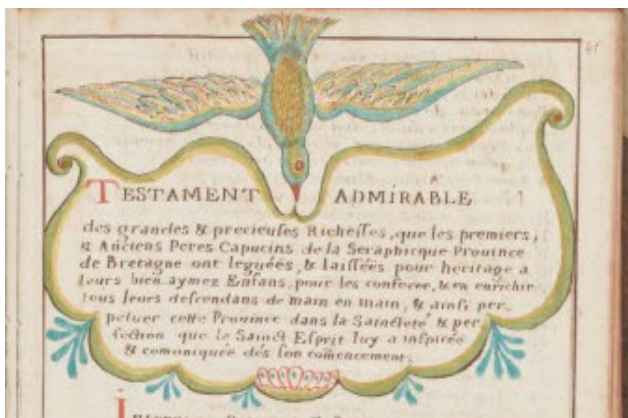 81
TESTAMENT ADMIRABLE
des grandes & precieuses Richesses, que les premiers,
& Anciens Peres Capucins de la Seraphicque Province
de Bretagne ont leguéés, & laissëës pour heritage a
leurs bien aymez Enfans, pour les conserver, & en enrichir
tous leurs descendans de main en main, & ainsi per-
petuer cette Province dans la Saincteté & per
fection que le Sainct Esprit luy a inspirée
& comuniquée dés son comencement.